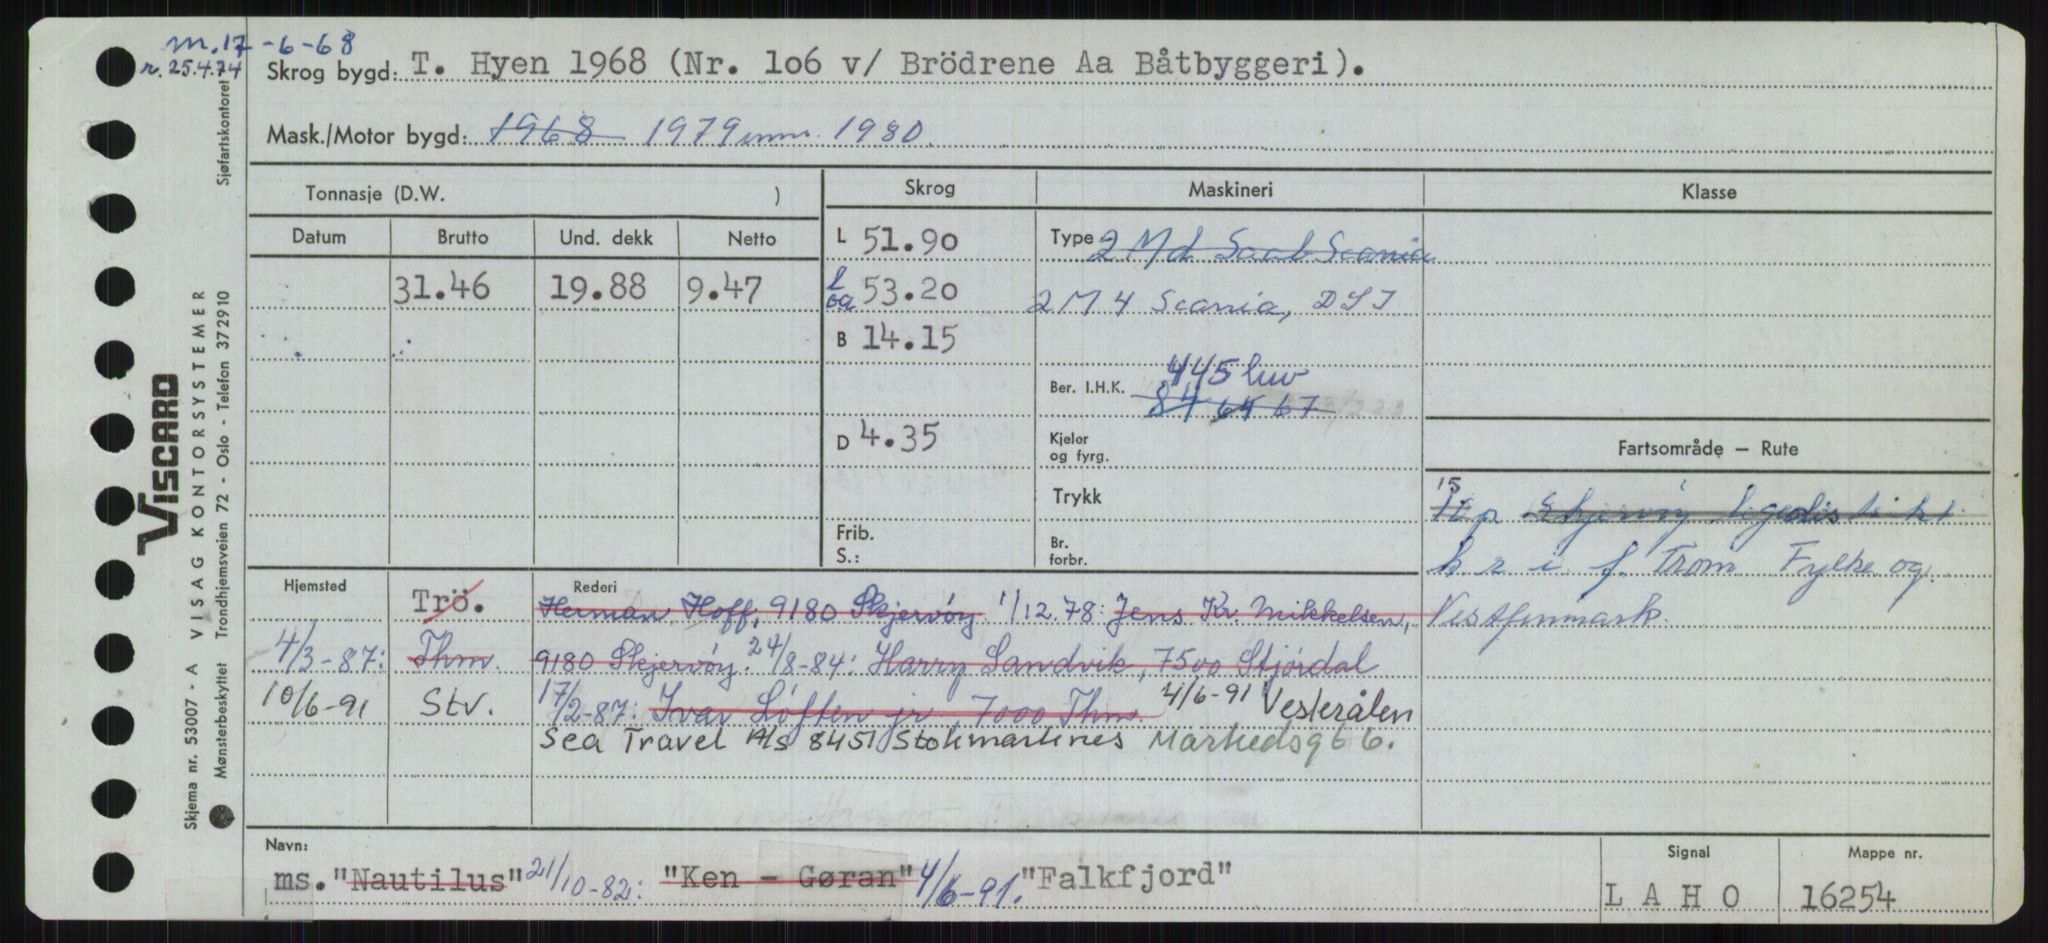 m. 17-6-68
r. 25.4.74
Skrog bygd: T. Hyen 1968 (Nr. 1o6 v/ Brödrene Aa Båtbyggeri).
Mask./Motor bygd: 1968 1979 1980
Tonnasje (D.W. )
Skrog
Maskineri
Klasse
Datum
Brutto
Und. dekk
Netto
31.46
19.88
9.47
L 51.90
l oa 53.20
B 14.15
D 4.35
Frib.
S.:
Type 2 Md Saab Scania
2 M 4 Scania, DSI
Ber. I.H.K. 445 luv
84 64 67
Kjeler
og fyrg.
Trykk
Br.
forbr.
Fartsområde – Rute
15
p Skjervøy legedistrikt
k r i f. Trom Fylke og
Vestfinnmark.
Hjemsted
Trö.
4/3-87: Thm.
10/6-91 Stv.
Rederi
Herman Hoff, 9180 Skjervöy 1/12.78: Jens Kr. Mikkelsen,
9180 Skjervöy. 24/8-84: Harry Sandvik, 7500 Stjördal
17/2-87: Ivar Löften jr, 7000 Thm. 4/6-91 Vesterålen
Sea Travel A/s 8451 Stokmarknes Markedsgt 6.
Navn:
ms. "Nautilus" 21/10-82: "Ken - Gøran" 4/6-91. "Falkfjord"
Signal
L A H O
Mappe nr.
16254
Sjøfartskontoret
VISCARD
Skjema nr. 53007 - A VISAG KONTORSYSTEMER
Mønsterbeskyttet Trondhjemsveien 72 - Oslo - Telefon 372910